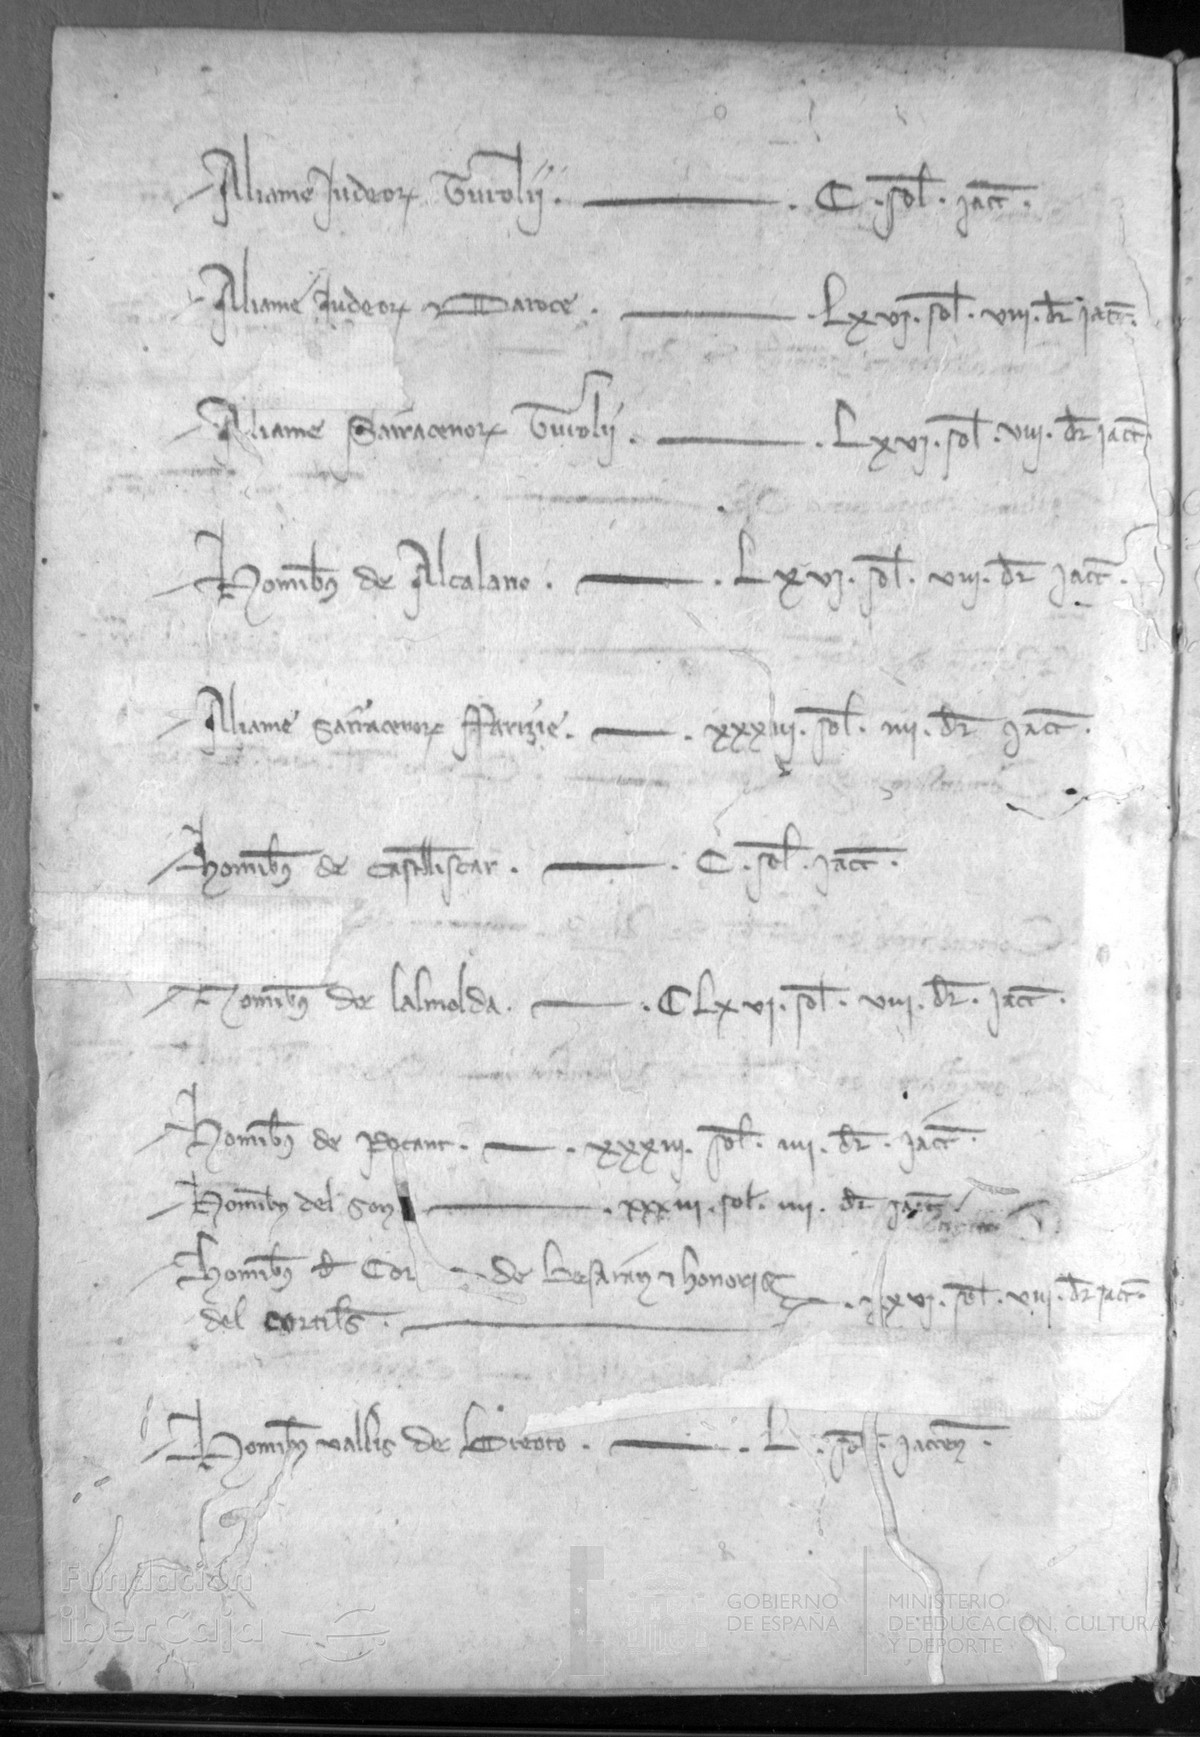 Aliame Judeorꝝ Turolij · C · sol · jacc ·
Aliame Judeorꝝ Daroce · Lxvj · sol · viij · dr jacc ·
Aliame Sarracenorꝝ Turolij · Lxvj · sol · viij · dr jacc ·
Hominibꝫ de Alcalano · Lxvj · sol · viij · dr jacc ·
Aliame Sarracenorꝝ Farizie · xxxiij · sol · iiij · dr jacc ·
hominibꝫ de Castelliscar · C · sol · jacc ·
hominibꝫ de lalmolda · CLxvj · sol · viij · dr · jacc ·
Hominibꝫ de · xxxiij · sol · iiij · dr · jacc ·
Hominibꝫ del · xxxiij · sol · iiij · dr jacc
Hominibꝫ d Cor de Besaran honoris
del · xvj · sol · viij · dr jacc ·
Hominibꝫ vallis de · L · sol · jaccen ·
Fundación
iberCaja
GOBIERNO
DE ESPAÑA
MINISTERIO
DE EDUCACIÓN, CULTURA
Y DEPORTE